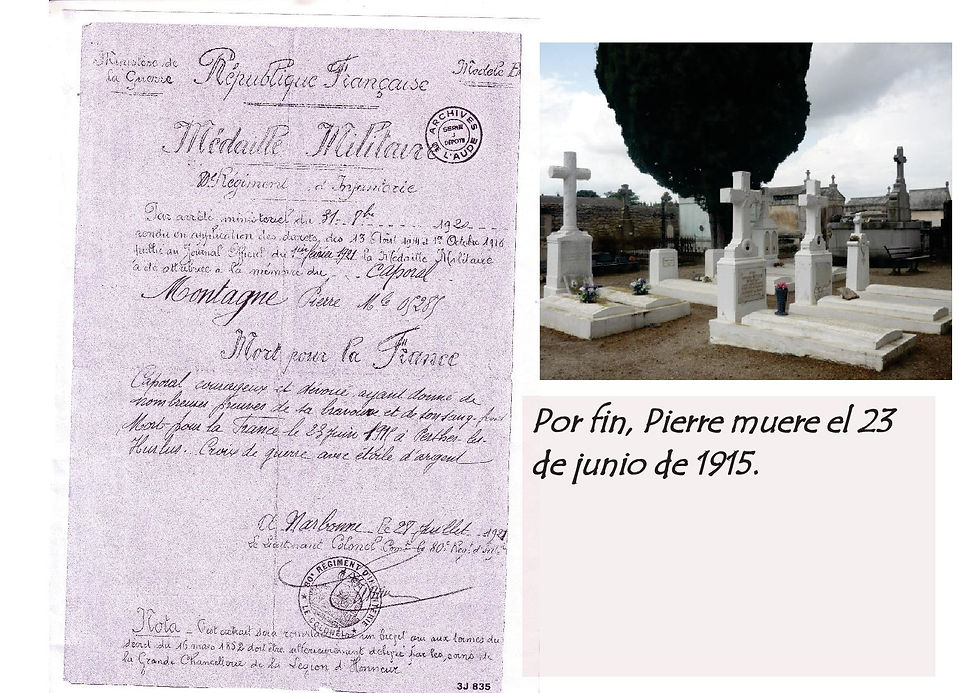 Ministère de
la Guerre
République Française
Modèle
ARCHIVES
SERIE
J
DEPOTS
DE L'AUDE
Médaille Militaire
Régiment d'Infanterie
Par arrêté ministériel du 31 - 9bre 1920
rendu en application des décrets des 13 Août 1914 et 1er Octobre 1916
publié au Journal Officiel du 1921 la Médaille Militaire
a été attribuée à la mémoire du Caporal
Montagne Pierre Mle 05285
Mort pour la France
Caporal courageux et dévoué ayant donné de
nombreuses preuves de sa bravoure et de son sang-froid
Mort pour la France le 23 juin 1915 à Perthes-les-
Hurlus. Croix de guerre avec étoile d'argent
A Narbonne le 27 Juillet 192
Le Lieutenant Colonel Comt le 80e Régt d'Inf
80e REGIMENT D'INFANTERIE
LE COLONEL
Nota - Cet extrait sera un brevet qui aux termes du
décret du 16 mars 1852 doit être ultérieurement délivré par les soins de
la Grande Chancellerie de la Légion d'Honneur
3J 835
Por fin, Pierre muere el 23
de junio de 1915.